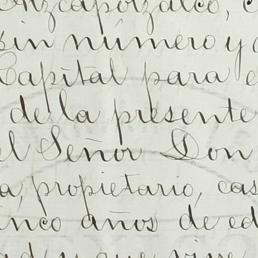 Azcapotzalco, C
sin número y a
Capital para e
de la presente
el Señor Don
a, propietario, cas
inco años de ed
ad y que vive